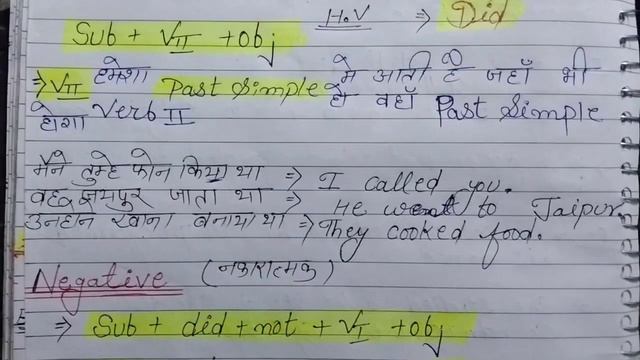 H.V ⇒ Did
Sub + VII + obj
⇒ VII हमेशा Past Simple मे आती है जहाँ भी
होगा Verb II हो वहाँ Past Simple
मैने तुम्हे फोन किया था ⇒ I called you.
वह जयपुर जाता था ⇒ He went to Jaipur
उन्होने खाना बनाया था ⇒ They cooked food.
Negative (नकारात्मक)
⇒ Sub + did + not + VI + obj